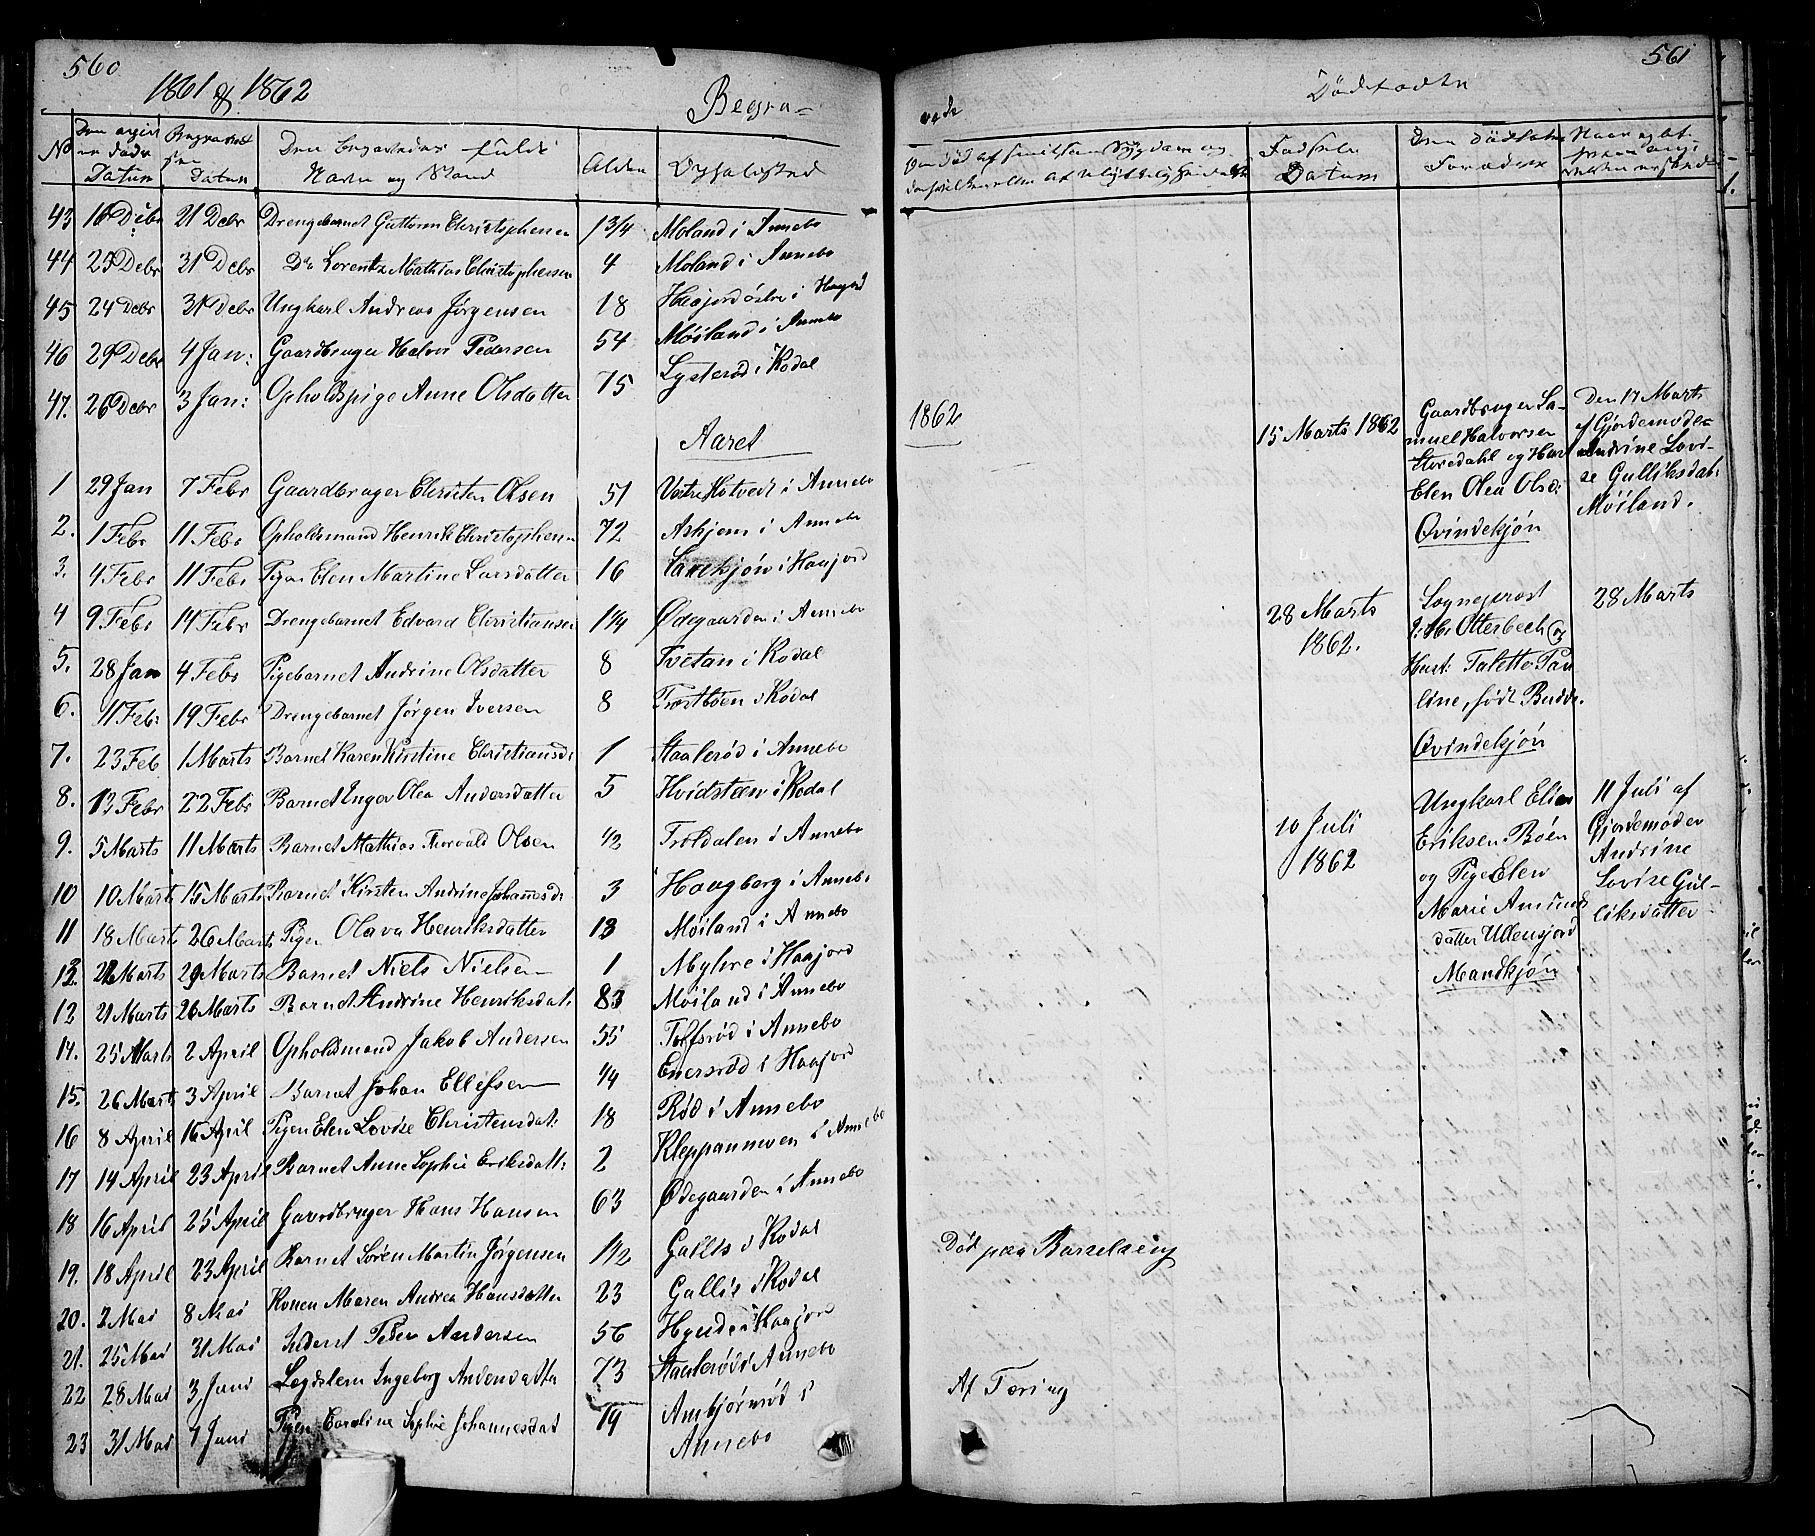 560
1861 & 1862
Begra-
No
Den angivne døde Datum
Begravelsen Datum
Den Begravedes fulde Navn og Stand
Alder
Opholdssted
43 16 Debr 21 Debr Drengebarnet Guttorm Christophersen 1 3/4 Moland i Annebo
44 25 Debr 31 Debr Do Lorentz Mathias Christophersen 4 Moland i Annebo
45 24 Debr 31 Debr Ungkarl Andreas Jørgensen 18 Haajord østre i Haajord
46 29 Debr 4 Jan: Gaardbruger Halvor Pedersen 54 Møiland i Annebo
47. 26 Debr 3 Jan: Opholdspige Anne Olsdatter 75 Lysterød i Kodal
Aaret
1 29 Jan 7 Febr Gaardbruger Christen Olsen 51 Vestre Hotvedt i Annebo
2. 1 Febr 11 Febr Opholdsmand Henrik Christophersen 72 Askjem i Annebo
3. 4 Febr 11 Febr Pigen Elen Martine Larsdatter 16 i Haajord
4 9 Febr 14 Febr Drengebarnet Edvard Christiansen 1 1/4 Ødegaarden i Annebo
5. 28 Jan 4 Febr Pigebarnet Andrine Olsdatter 8 Tvetan i Kodal
6. 11 Feb: 19 Febr Drengebarnet Jørgen Iversen 8 Prestbøen i Kodal
7. 23 Feb 1 Marts Barnet Karen Kirstine Christiansd: 1 Staalerød i Annebo
8. 13 Febr 22 Febr Barnet Inger Olea Andersdatter 5 Hvidsteen i Kodal
9. 5 Marts 11 Marts Barnet Mathias Thorvald Olsen 1/2 Troldalen i Annebo
10 10 Marts 15 Marts Barnet Kirsten Andrine Johannesd: 3 Haugberg i Annebo
11 18 Marts 26 Marts Pigen Olava Henriksdatter 13 Møiland i Annebo
12. Marts 29 Marts Barnet Niels Nielsen 1 Myhre i Haajord
12 21 Marts 26 Marts Barnet Andrine Henriksdat: 83 Møiland i Annebo
14. 25 Marts 2 April Opholdsmand Jakob Andersen 55 Tolfsrød i Annebo
15. 26 Marts 3 April Barnet Johan Ellefsen 1/4 Enersrød i Haajord
16 8 April 16 April Pigen Elen Lovise Christensdat: 18 Rød i Annebo
17 14 April 23 April Barnet Anne Sophie Eriksdatt: 2 Kleppanmoen i Annebo
18 16 April 25 April Gaardbruger Hans Hansen 63 Ødegaarden i Annebo
19. 18 April 23 April Barnet Søren Martin Jørgensen 1 1/2 Gallis i Kodal
20. 2 Mai 8 Mai Konen Maren Andrea Hansdatter 23 Gallis i Kodal
21. 25 Mai 31 Mai Inderst Peder Andersen 56 Hynde i Haajord
22 28 Mai 3 Juni Lægdslem Ingeborg Andersdatter 73 Staalerød i Annebo
23 31 Mai 7 Juni Pigen Caroline Sophie Johannesdat 19 Ambjørnrød i
Annebo
561
vede
Dødfødte
Om Død af smitsom Sygdom og
Fødsels Datum
Den Dødfødtes Forældre
1862
Død paa Barselseng
Af Tæring
15 Marts 1862
Gaardbruger Sa-
muel Halvorsen
Storedahl og Hust
Elen Olea Olsd:
Qvindekjøn
Den 17 Marts
af Gjordemode-
Andrine Lovi-
se Gulliksdat:
Møiland.
28 Marts
1862.
Sogneprest
Otterbech og
Hust: Taletta Pau
line, født Budde.
Qvindekjøn
28 Marts
10 Juli
1862
Ungkarl Elias
Eriksen Bøen
og Pige Elen
Marie Amunds
datter Ullensjord
Mandkjøn
11 Juli af
Gjordemoder
Andrine
Lovise Gul-
liksdatter